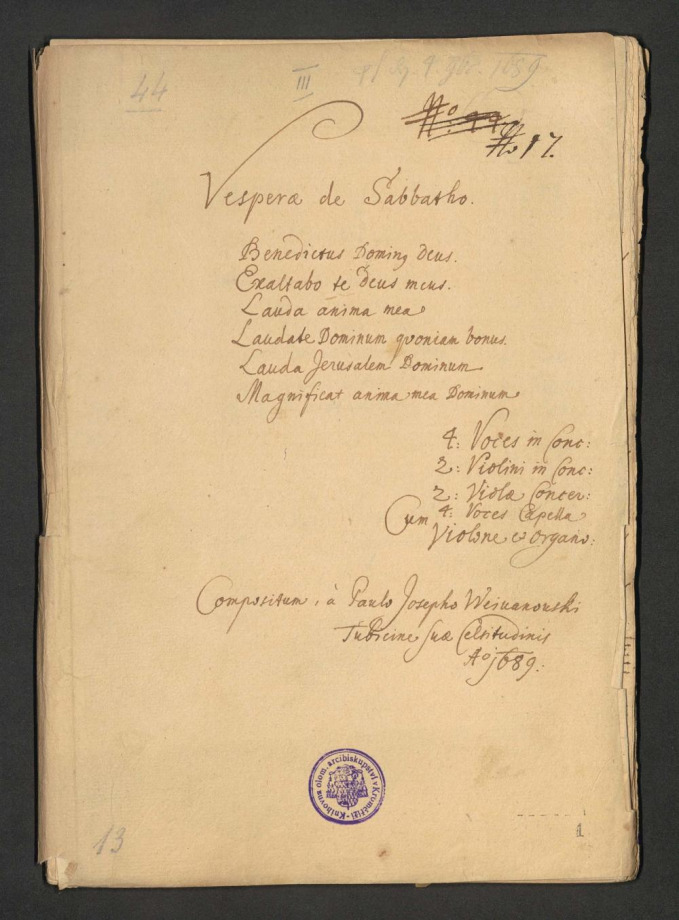 44
III
1689
No 17.
Vesperæ de Sabbatho.
Benedictus Dominꝰ Deus.
Exaltabo te Deus meus.
Lauda anima mea
Laudate Dominum quoniam bonus.
Lauda Jerusalem Dominum
Magnificat anima mea Dominum
4: Voces in Conc:
2: Violini in Conc:
2: Violæ Concer:
Cum 4: Voces Capella
Violone et Organo:
Compositum, à Paulo Josepho Weiwanowski
Tubicine Suæ Celsitudinis
Aº 1689:
Knihovna olom. arcibiskupství v Kroměříži
13
1